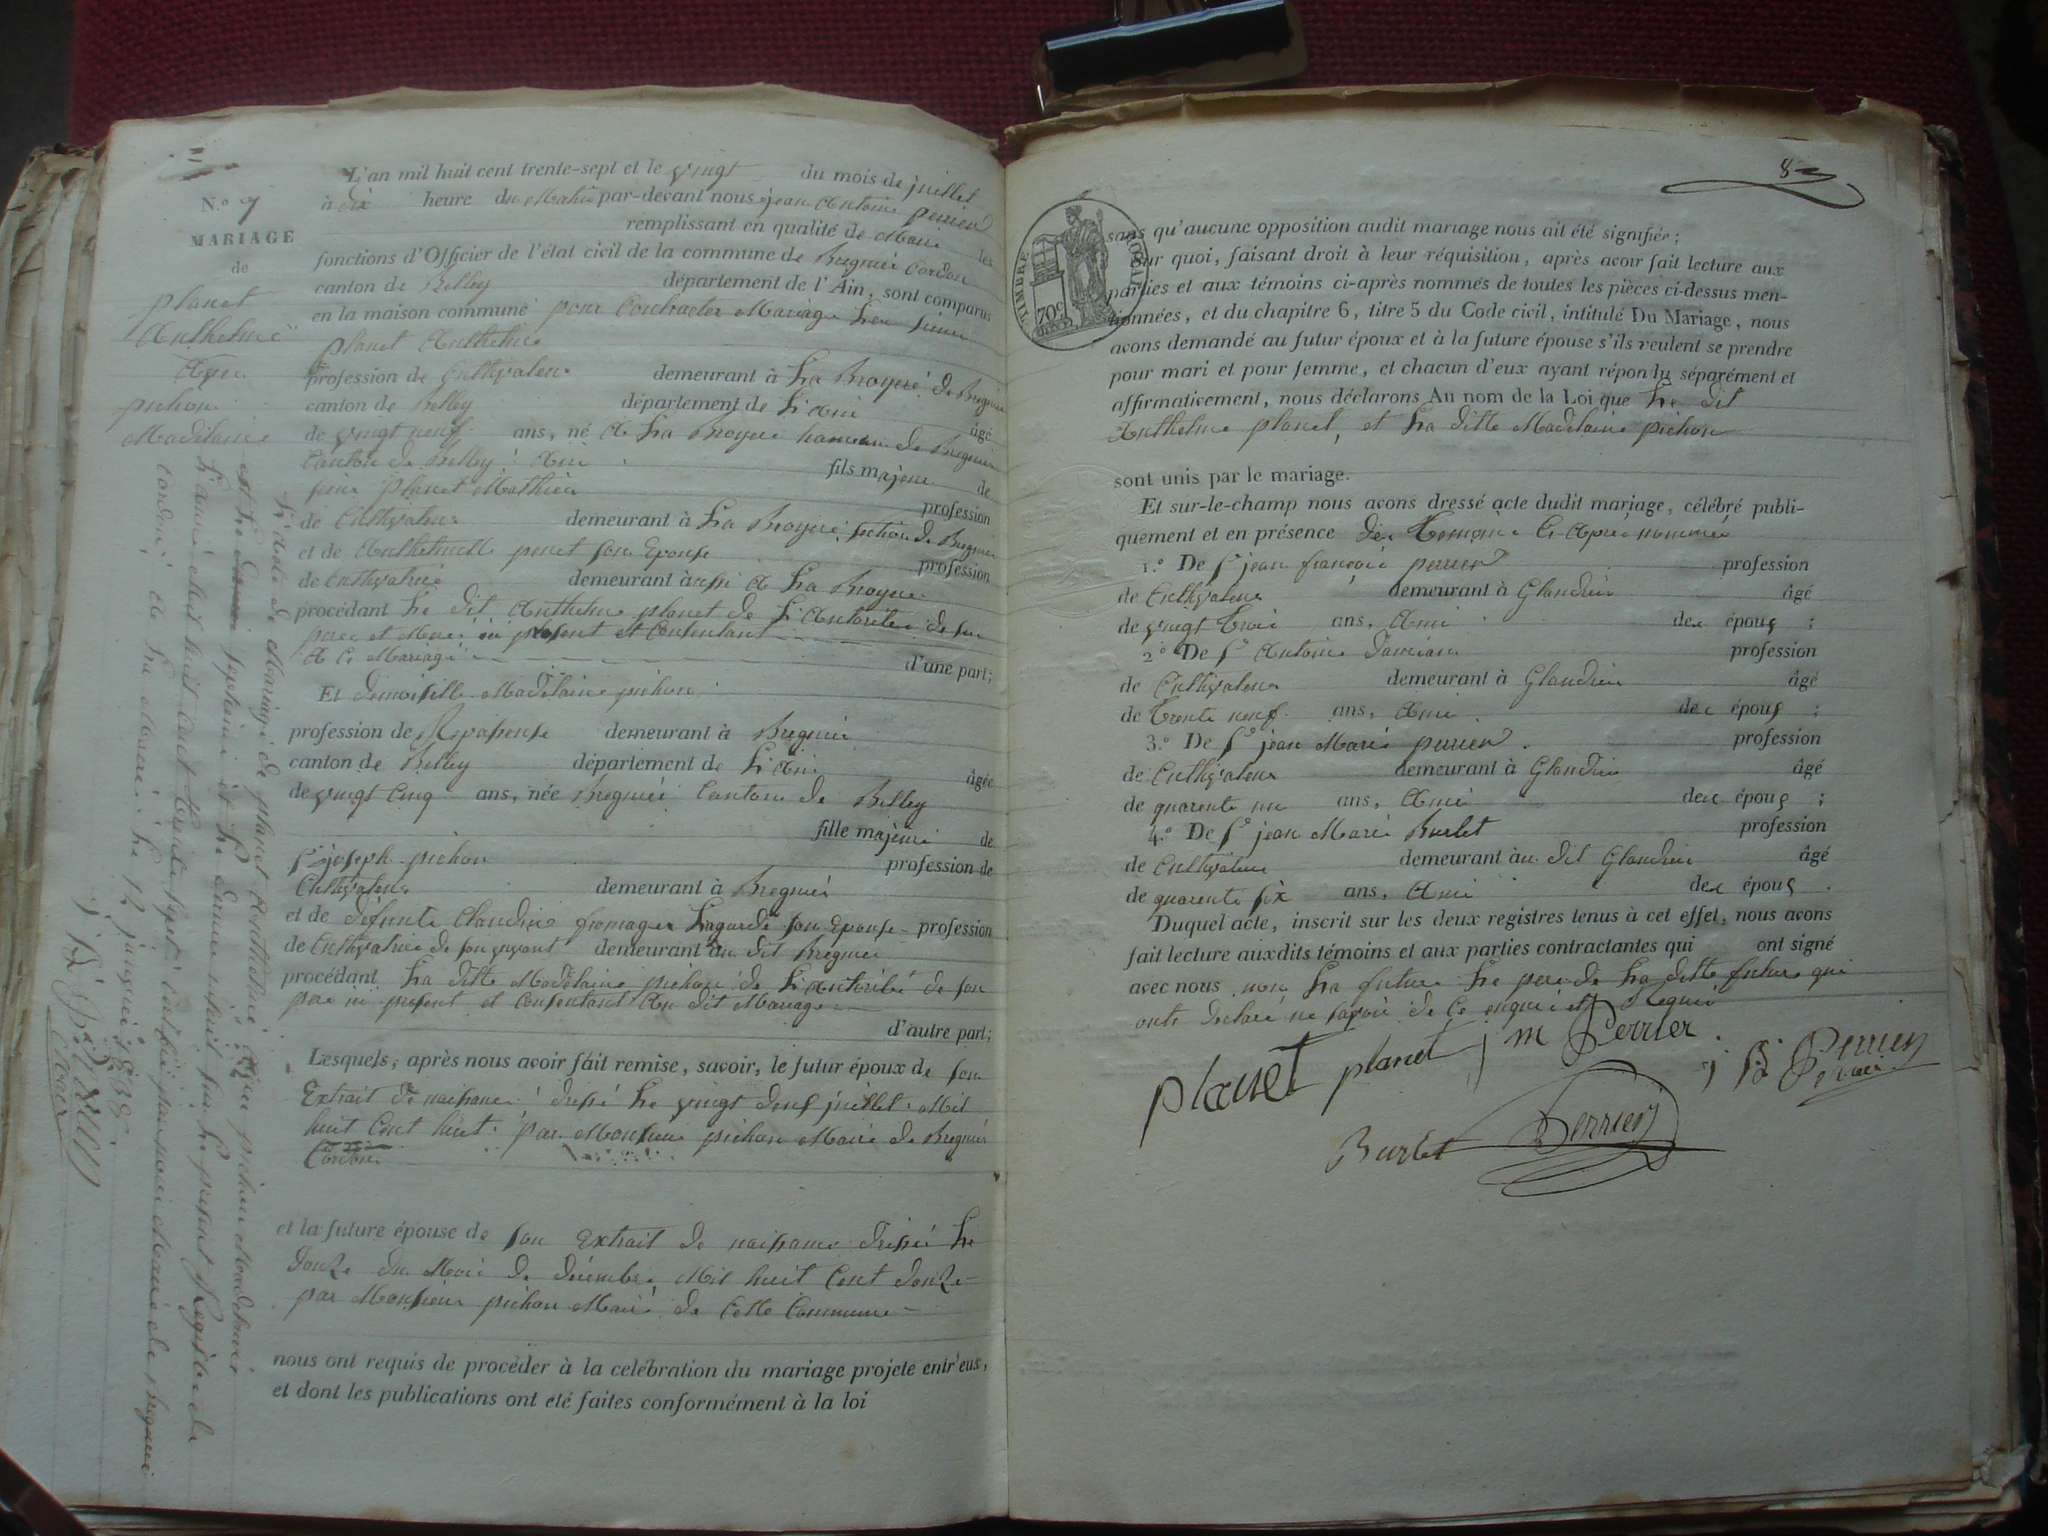 N.o 7
MARIAGE
de
planet
Anthelme
Avec
pichon
Madelaine
L'an mil huit cent trente-sept et le vingt du mois de juillet
à dix heure du Matin par-devant nous jean Antoine perrier
remplissant en qualité de Maire les
fonctions d'Officier de l'état civil de la commune de Bregnier Cordon
canton de Belley département de l'Ain, sont comparus
en la maison commune pour Contracter Mariage Le sieur
planet Anthelme
profession de Cultivateur demeurant à La Bruyere de Bregnier
canton de Belley département de L'Ain âgé
de vingt neuf ans, né A La Bruyere hameau de Bregnier
Canton de Belley Ain fils majeur de
sieur planet Mathieu profession
de Cultivateur demeurant à La Bruyere section de Bregnier
et de Anthelmette penet son Epouse profession
de Cultivatrice demeurant aussi A La Bruyere
procédant Le dit Anthelme planet de L'Autorité de ses
pere et Mere ici présent et Consentant
A Ce Mariage d'une part;
Et demoiselle Madelaine pichon
profession de Repasseuse demeurant à Bregnier
canton de Belley département de L'Ain âgée
de vingt Cinq ans, née Bregnier Canton de Belley
fille majeure de
Sr joseph pichon profession de
Cultivateur demeurant à Bregnier
et de défunte Claudine fromager Lagarde son Epouse profession
de Cultivatrice de son vivant demeurant au dit Bregnier
procédant La ditte Madelaine pichon de L'Autorité de son
pere ici présent et Consentant Au dit Mariage
d'autre part;
Lesquels, après nous avoir fait remise, savoir, le futur époux de son
Extrait de naissance dressé Le vingt deux juillet Mil
huit Cent huit par Monsieur pichon Maire de Bregnier
Cordon
et la future épouse de son Extrait de naissance dressé Le
douze du Mois de décembre Mil huit Cent douze
par Monsieur pichon Maire de Cette Commune
nous ont requis de procéder à la celébration du mariage projeté entr'eux,
et dont les publications ont été faites conformément à la loi
L'acte de Mariage de planet Anthelme Avec pichon Madelaine
et Le septieme et Le dernier inscrit sur Le présent Registre de
L'année Mil huit Cent trente sept Certifié par nous Maire de Bregnier
Cordon, de La Mairie Le 12 janvier 1838
j Bte perrier
Maire
8
TIMBRE ROYAL
70c
sans qu'aucune opposition audit mariage nous ait été signifiée;
Sur quoi, faisant droit à leur réquisition, après avoir fait lecture aux
parties et aux témoins ci-après nommés de toutes les pièces ci-dessus men-
tionnées, et du chapitre 6, titre 5 du Code civil, intitulé Du Mariage, nous
avons demandé au futur époux et à la future épouse s'ils veulent se prendre
pour mari et pour femme, et chacun d'eux ayant répondu séparément et
affirmativement, nous déclarons Au nom de la Loi que Le dit
Anthelme planet, et La ditte Madelaine pichon
sont unis par le mariage.
Et sur-le-champ nous avons dressé acte dudit mariage, célébré publi-
quement et en présence des Temoins Ci Après nommés
1.o De Sr jean françois perrier profession
de Cultivateur demeurant à Glandieu âgé
de vingt Trois ans, Ami des époux ;
2.o De Sr Antoine Damians profession
de Cultivateur demeurant à Glandieu âgé
de Trente neuf ans, Ami des époux ;
3.o De Sr jean Marie perrier profession
de Cultivateur demeurant à Glandieu âgé
de quarente un ans, Ami des époux ;
4.o De Sr jean Marie Burlet profession
de Cultivateur demeurant au dit Glandieu âgé
de quarente six ans, Ami des époux .
Duquel acte, inscrit sur les deux registres tenus à cet effet, nous avons
fait lecture auxdits témoins et aux parties contractantes qui ont signé
avec nous non La future Le pere de La ditte future qui
onts déclaré ne savoir de Ce enquis et Requis
planet planet j m Perrier j Bte Perrier
Maire
Burlet Perrier